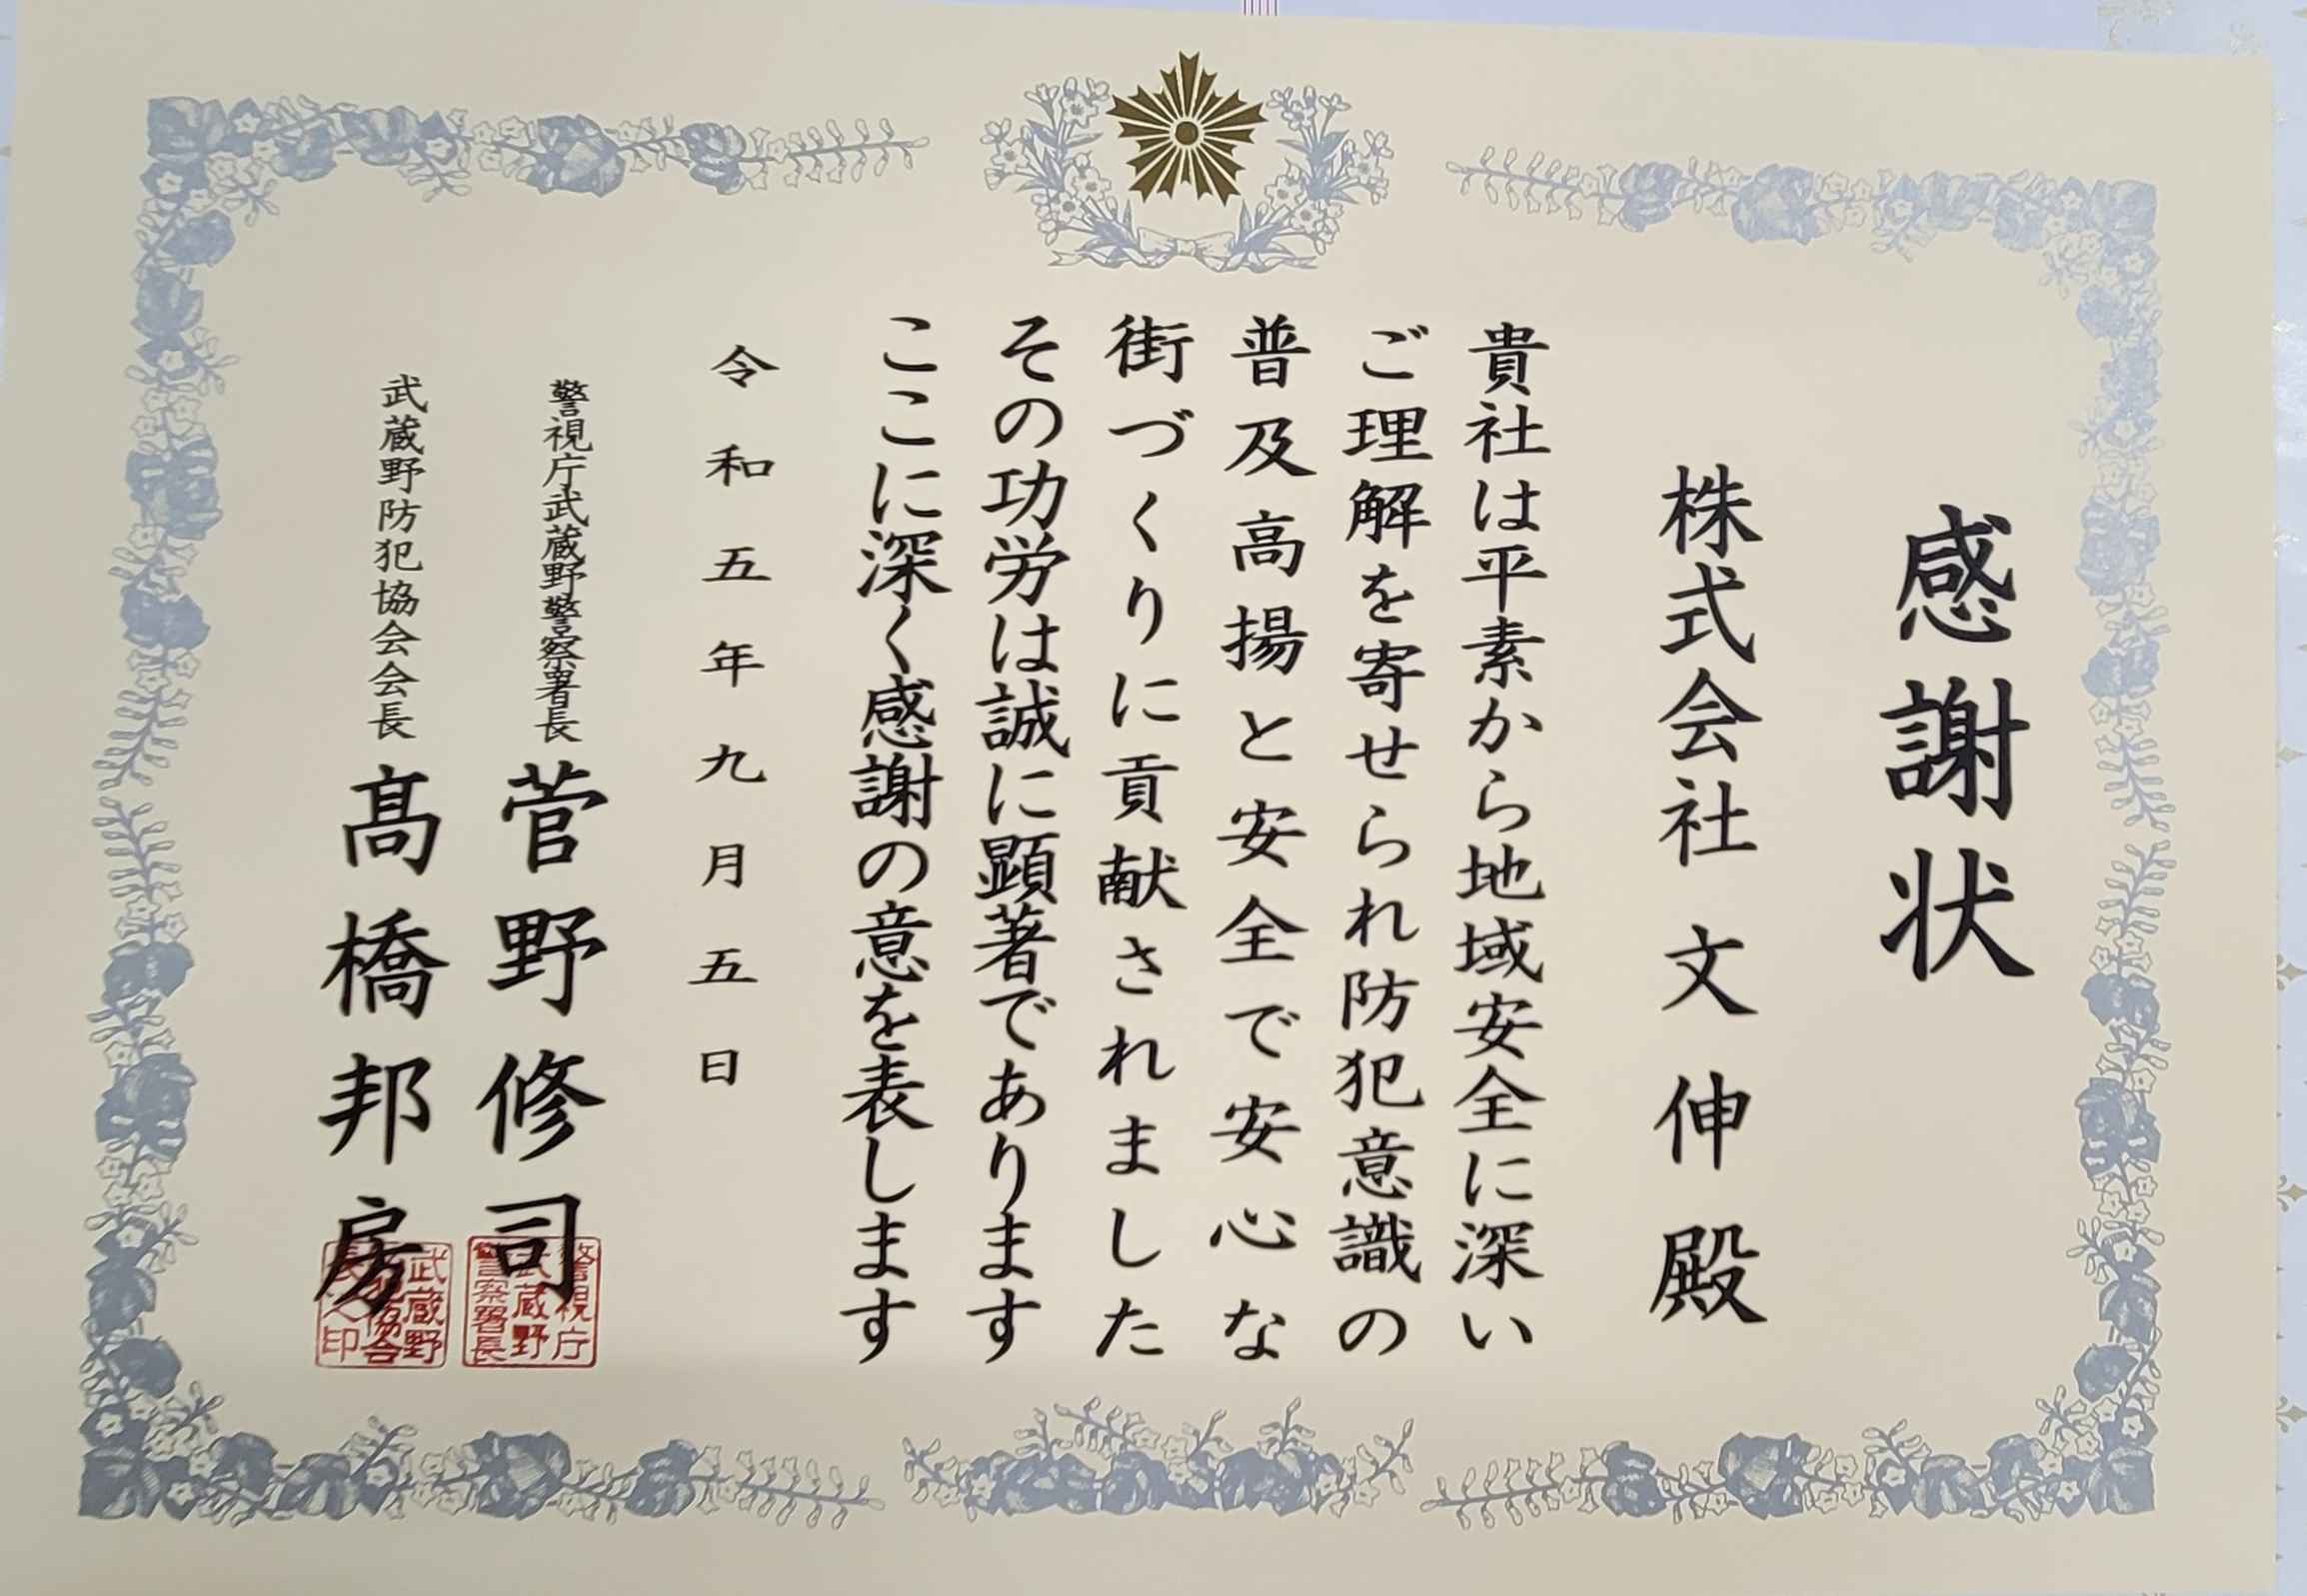 感謝状
株式会社 文伸 殿
貴社は平素から地域安全に深い
ご理解を寄せられ防犯意識の
普及高揚と安全で安心な
街づくりに貢献されました
その功労は誠に顕著であります
ここに深く感謝の意を表します
令和五年九月五日
警視庁武蔵野警察署長 菅野修司
警視庁
武蔵野
警察署長
武蔵野防犯協会会長 髙橋邦房
武蔵野